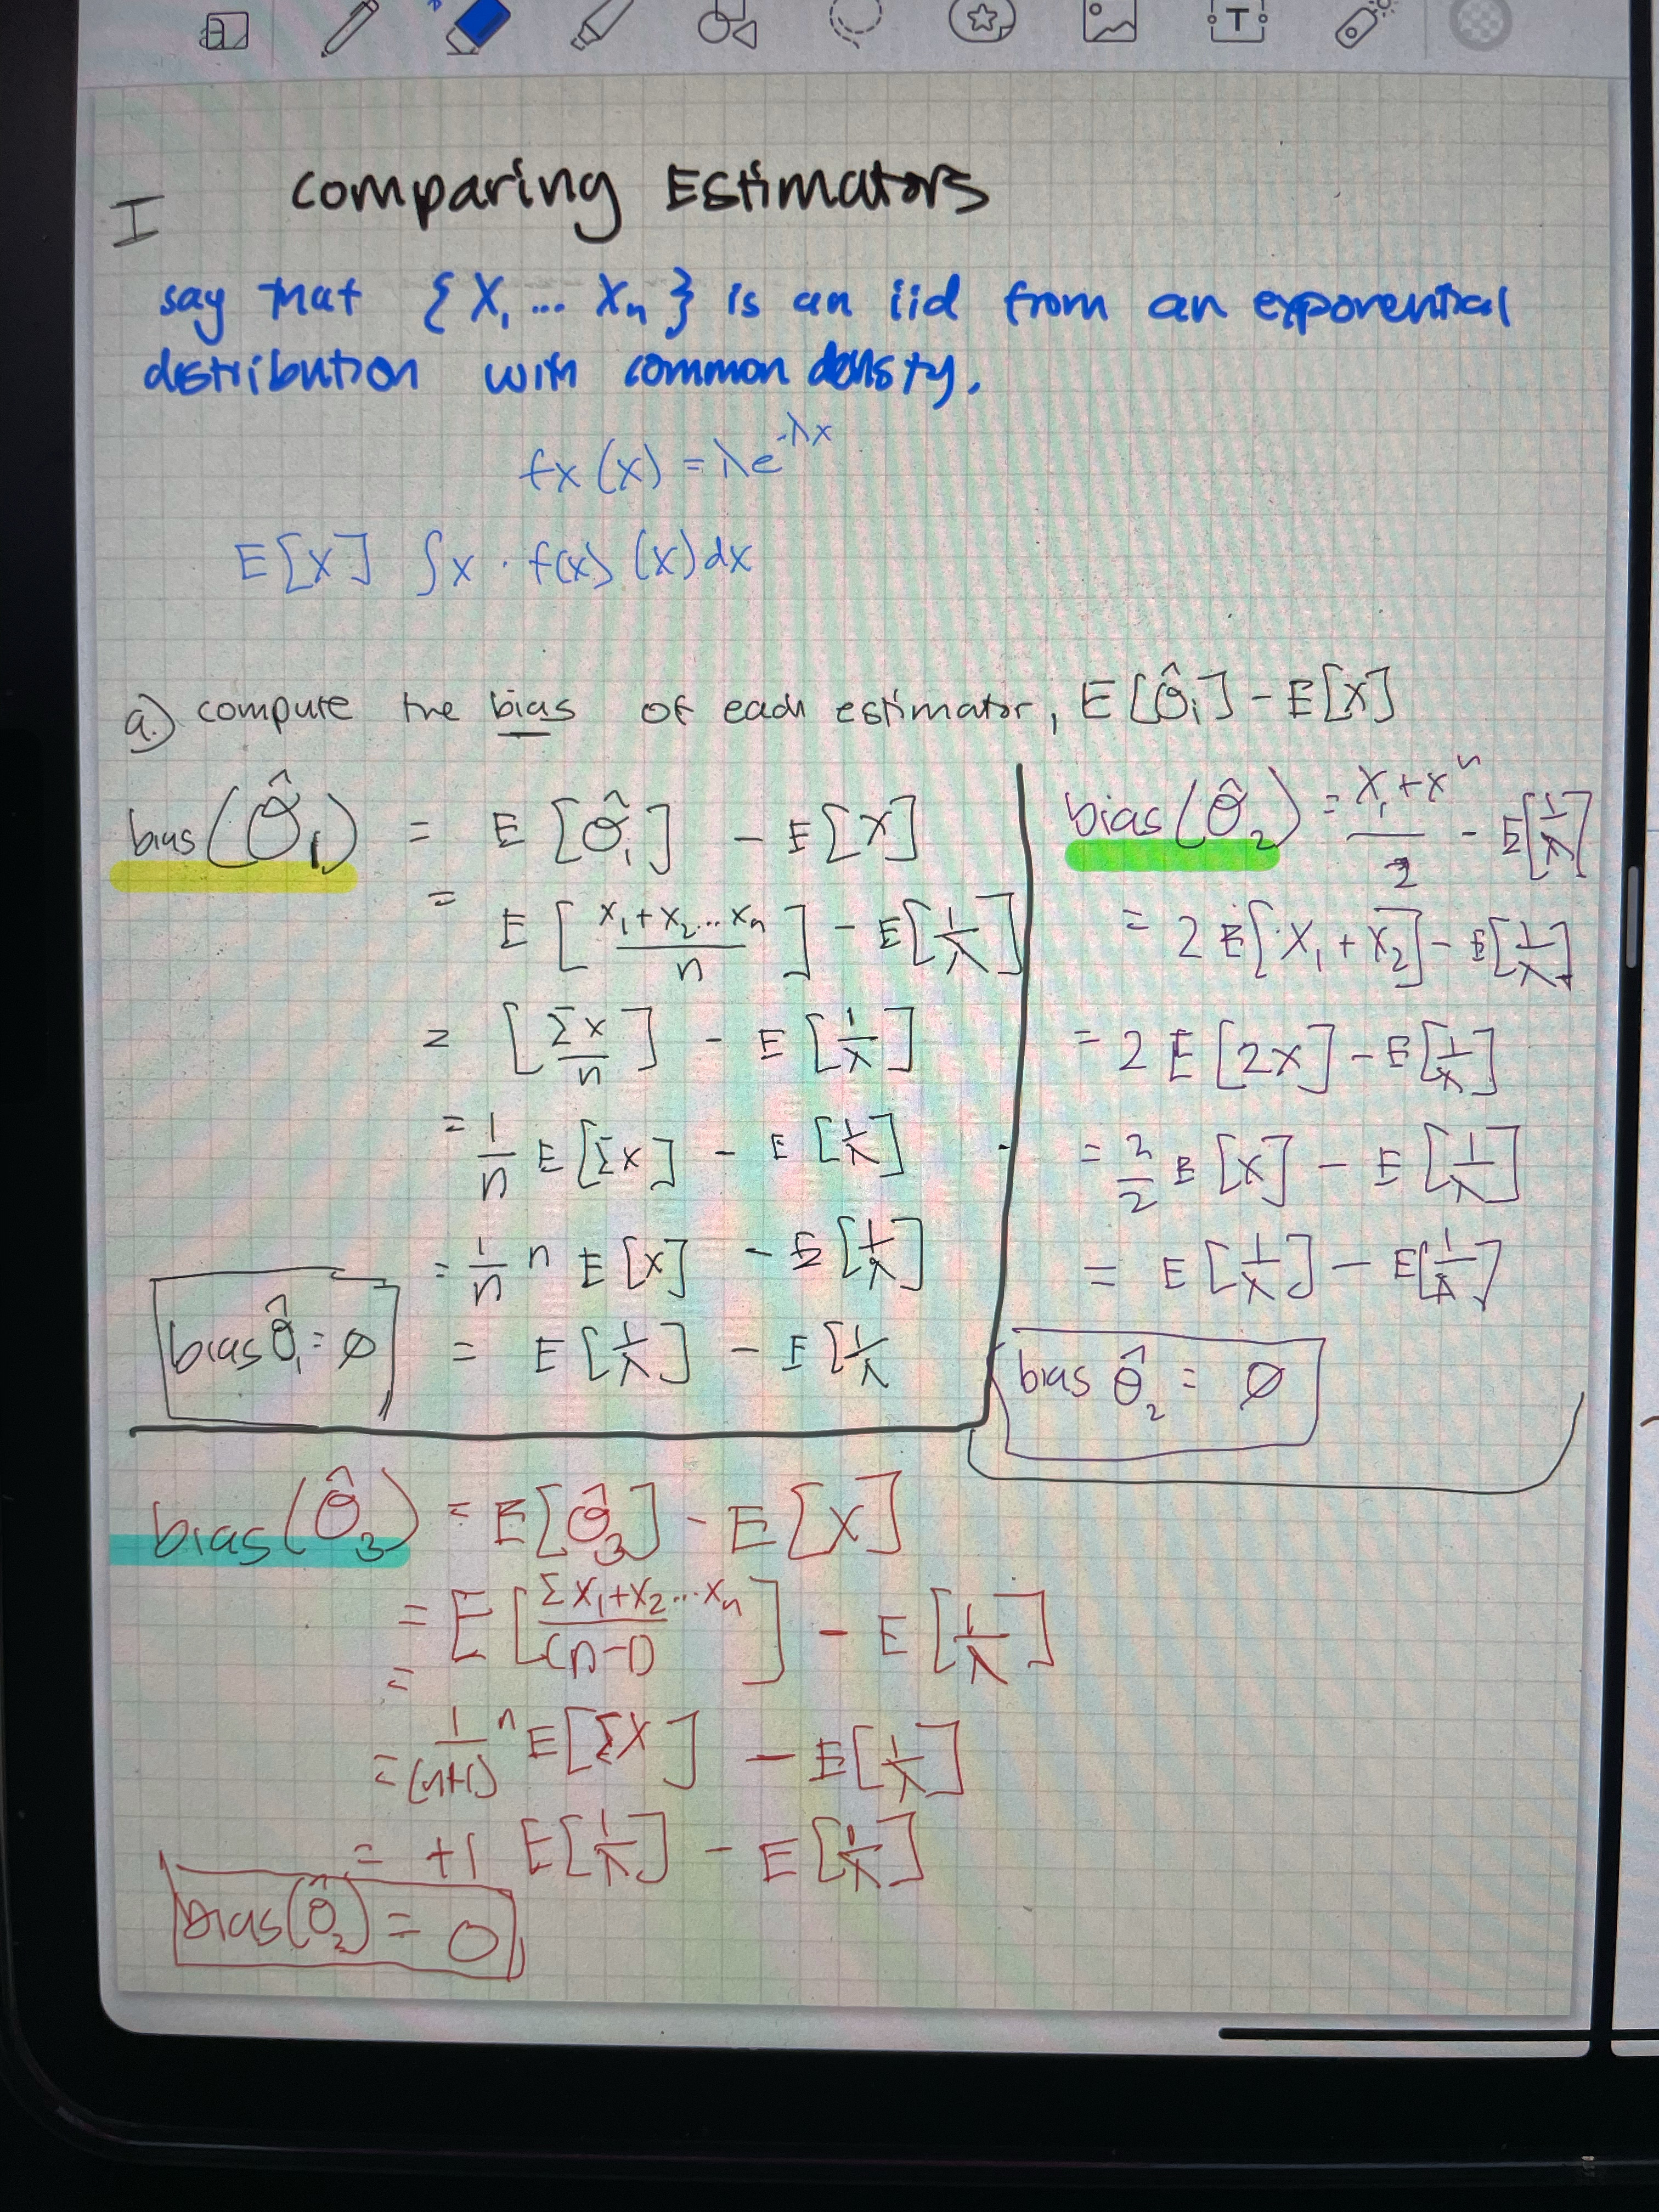 I comparing Estimators
say that {X₁ ... Xₙ} is an iid from an exponential
distribution with common density.
fx (x) = λe^-λx
E[X] ∫x · f(x) (x)dx
a.) compute the bias of each estimator, E[θ̂ᵢ] - E[X]
bias(θ̂₁) = E[θ̂₁] - E[X]
= E[(x₁+x₂...xₙ)/n] - E[1/λ]
= [Σx/n] - E[1/λ]
= 1/n E[Σx] - E[1/λ]
= 1/n n E[x] - E[1/λ]
= E[1/λ] - E[1/λ
bias θ̂₁ = ∅
bias(θ̂₂) = (X₁+xⁿ)/2 - E[1/λ]
= 2 E[X₁ + X₂] - E[1/λ]
= 2 E[2x] - E[1/λ]
= 2/2 E[x] - E[1/λ]
= E[1/λ] - E[1/λ]
bias θ̂₂ = ∅
bias(θ̂₃) = E[θ̂₃] - E[X]
= E[(Σx₁+x₂...xₙ)/(n-1)] - E[1/λ]
=
= 1/(n+1) n E[ΣX] - E[1/λ]
= +1 E[1/λ] - E[1/λ]
bias(θ̂₂) = 0